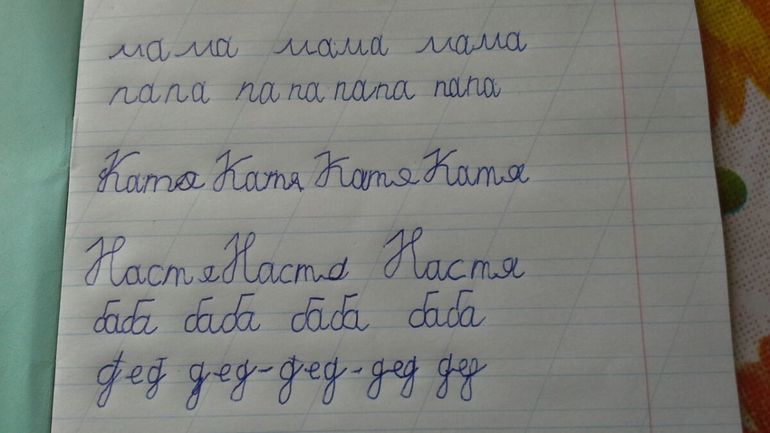 мама мама мама
папа папа папа папа
Катя Катя Катя Катя
Настя Настя Настя
баба баба баба баба
дед дед-дед-дед дед